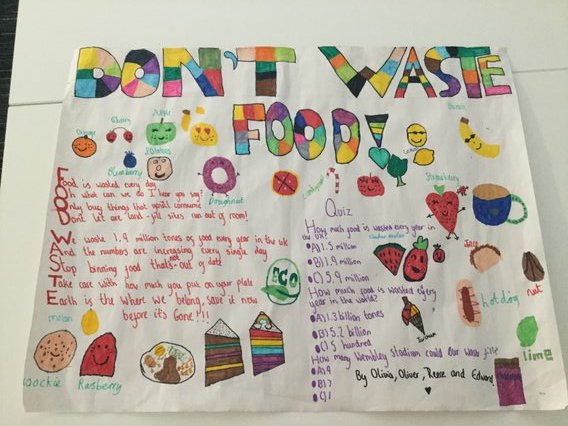 DON'T WASTE
FOOD!
Orange
Cherry
Apple
Blueberry
Potatoes
Doughnut
Lemon
Banana
Strawberry
FOOD WASTE
Food is wasted every day
Oh what can we do I hear you say?
Only buy things that you'll consume
Don't let are land-fill sites run out of room!
We waste 1.9 million tones of food every year in the uk
And the numbers are increasing every single day
Stop binning food thats not out of date
Take care with how much you put on your plate
Earth is the where we belong, save it now
before it's gone!!!
ECO
Quiz
How much food is wasted every year in
the uk?
A) 1.5 million
B) 1.9 million
C) 5.9 million
How much food is wasted every
year in the world?
A) 1.3 billion tones
B) 5.2 billion
C) 5 hundred
How many Wembley stadium could our waste fill?
A) 9
B) 7
C) 1
By Olivia, Oliver, Reece and Edward
hotdog
nut
lime
melon
coockie
Rasberry